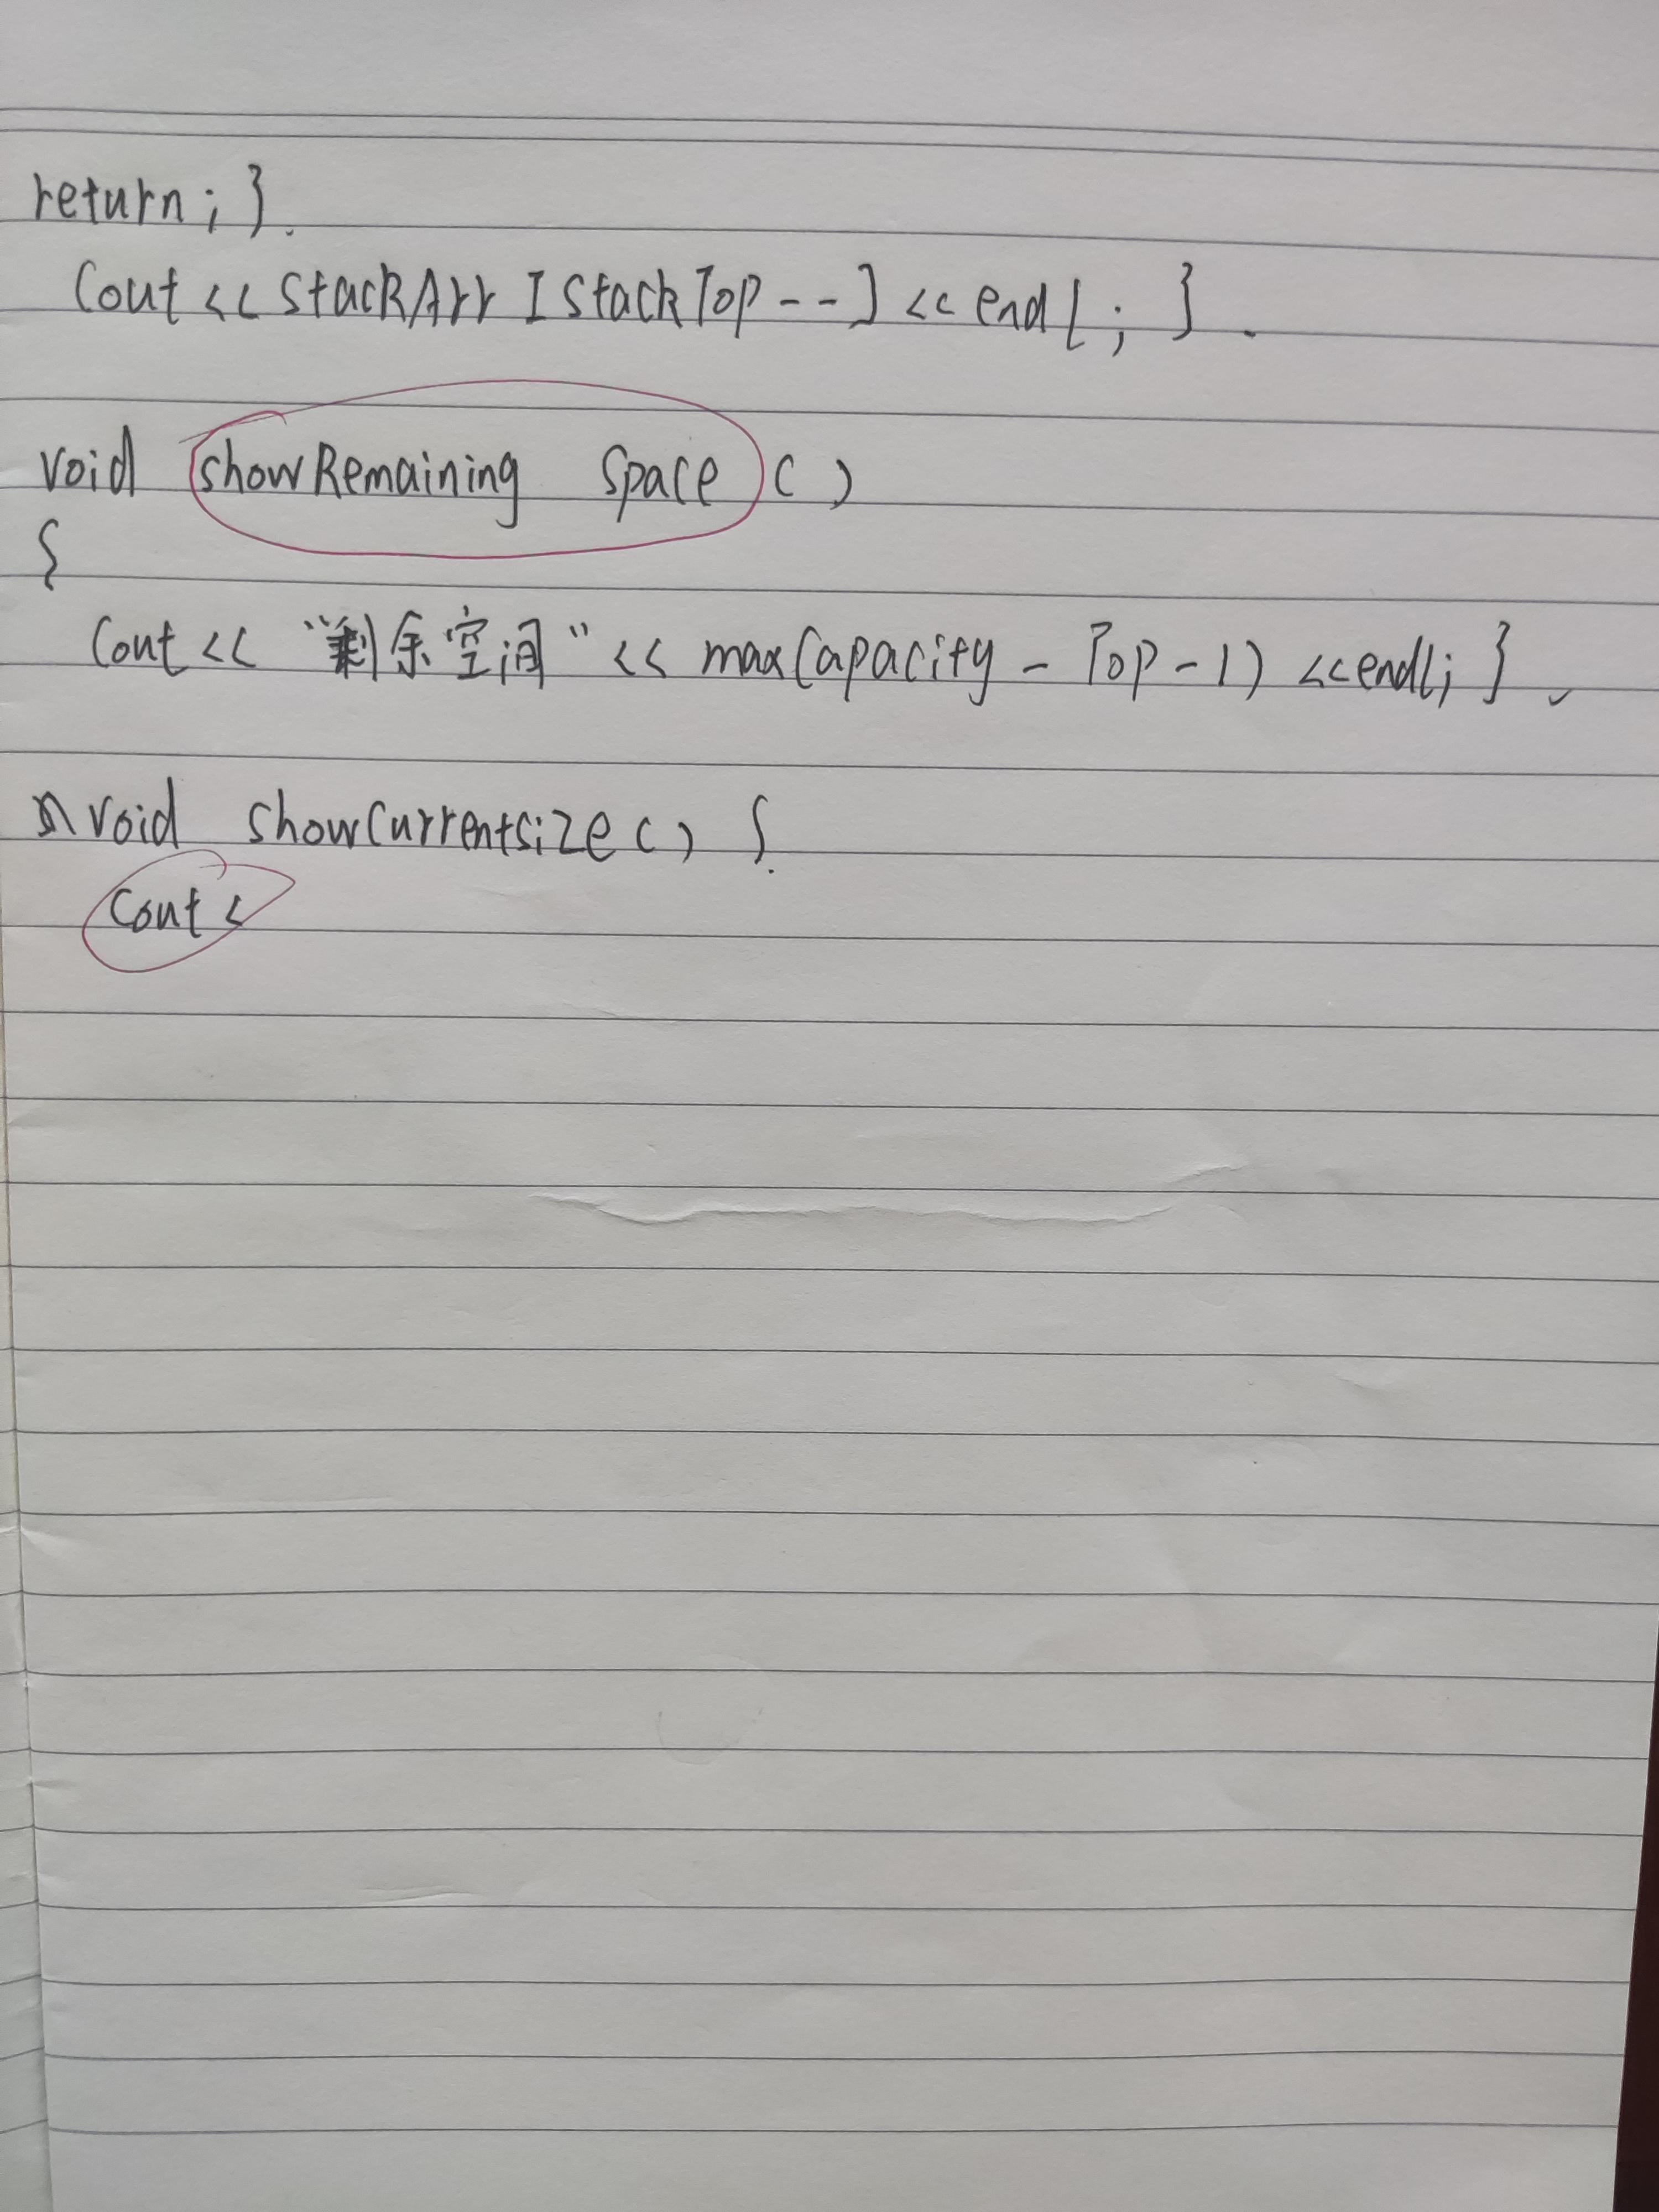 return ; }
cout << stackArr [stackTop--] << endl ; }
void showRemaining Space ( )
{
cout << "剩余空间" << maxCapacity - Top - 1) << endl; }
void showCurrentsize ( ) {
cout <